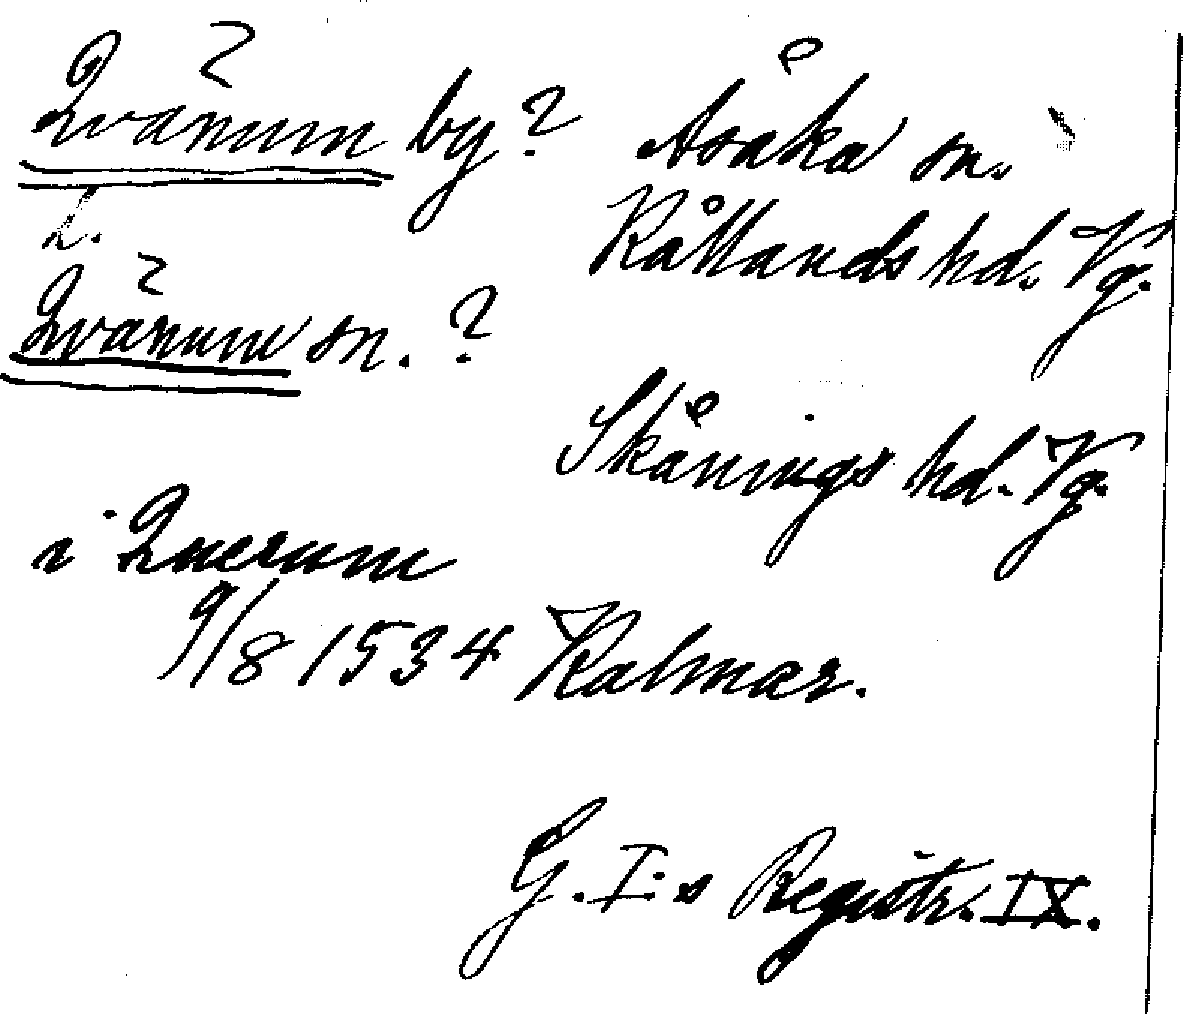 Qvänum by? Åsaka sn.
l. Kållands hd. Vg.
Qvänum sn. ?
Skånings hd. Vg.
i Querum
9/8 1534 Kalmar.
G. I:s Registr. IX.